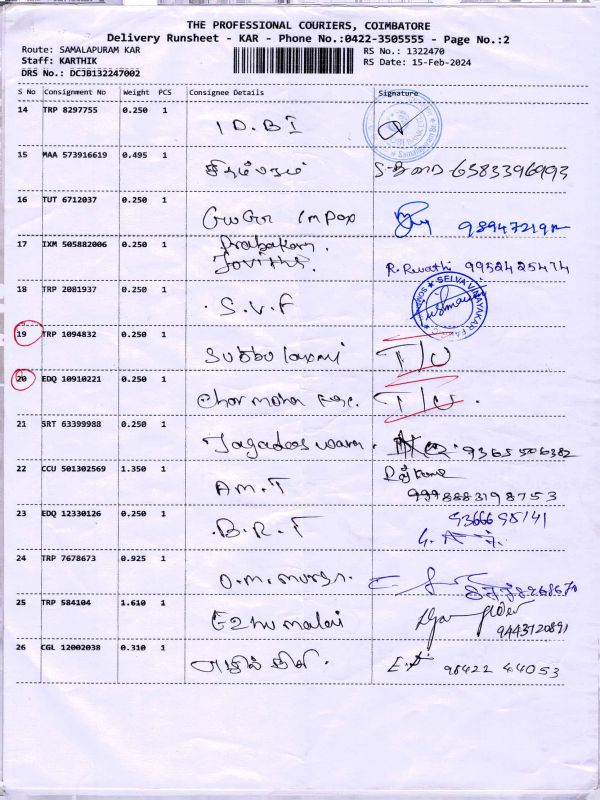 THE PROFESSIONAL COURIERS, COIMBATORE
Delivery Runsheet - KAR - Phone No.:0422-3505555 - Page No.:2
Route: SAMALAPURAM KAR
RS No.: 1322470
Staff: KARTHIK
RS Date: 15-Feb-2024
DRS No.: DCJB132247002
S No Consignment No Weight PCS Consignee Details Signature
14 TRP 8297755 0.250 1
I D.B I
15 MAA 573916619 0.495 1
சிதம்பரம்
16 TUT 6712037 0.250 1
17 IXM 505882006 0.250 1
Prabakaran.
R. Revathi 9952425474
18 TRP 2081937 0.250 1
. S.V.F
SELVA VINAYAKAR
19 TRP 1094832 0.250 1
Subbulaxmi T/U
20 EDQ 10910221 0.250 1
T/U.
21 SRT 63399988 0.250 1
Jagadeeswaran. 9365506382
22 CCU 501302569 1.350 1
A M. T
23 EDQ 12330126 0.250 1
B. R. F
24 TRP 7678673 0.925 1
25 TRP 584104 1.610 1
Ezhumalai
9443720891
26 CGL 12002038 0.310 1
98422 44053